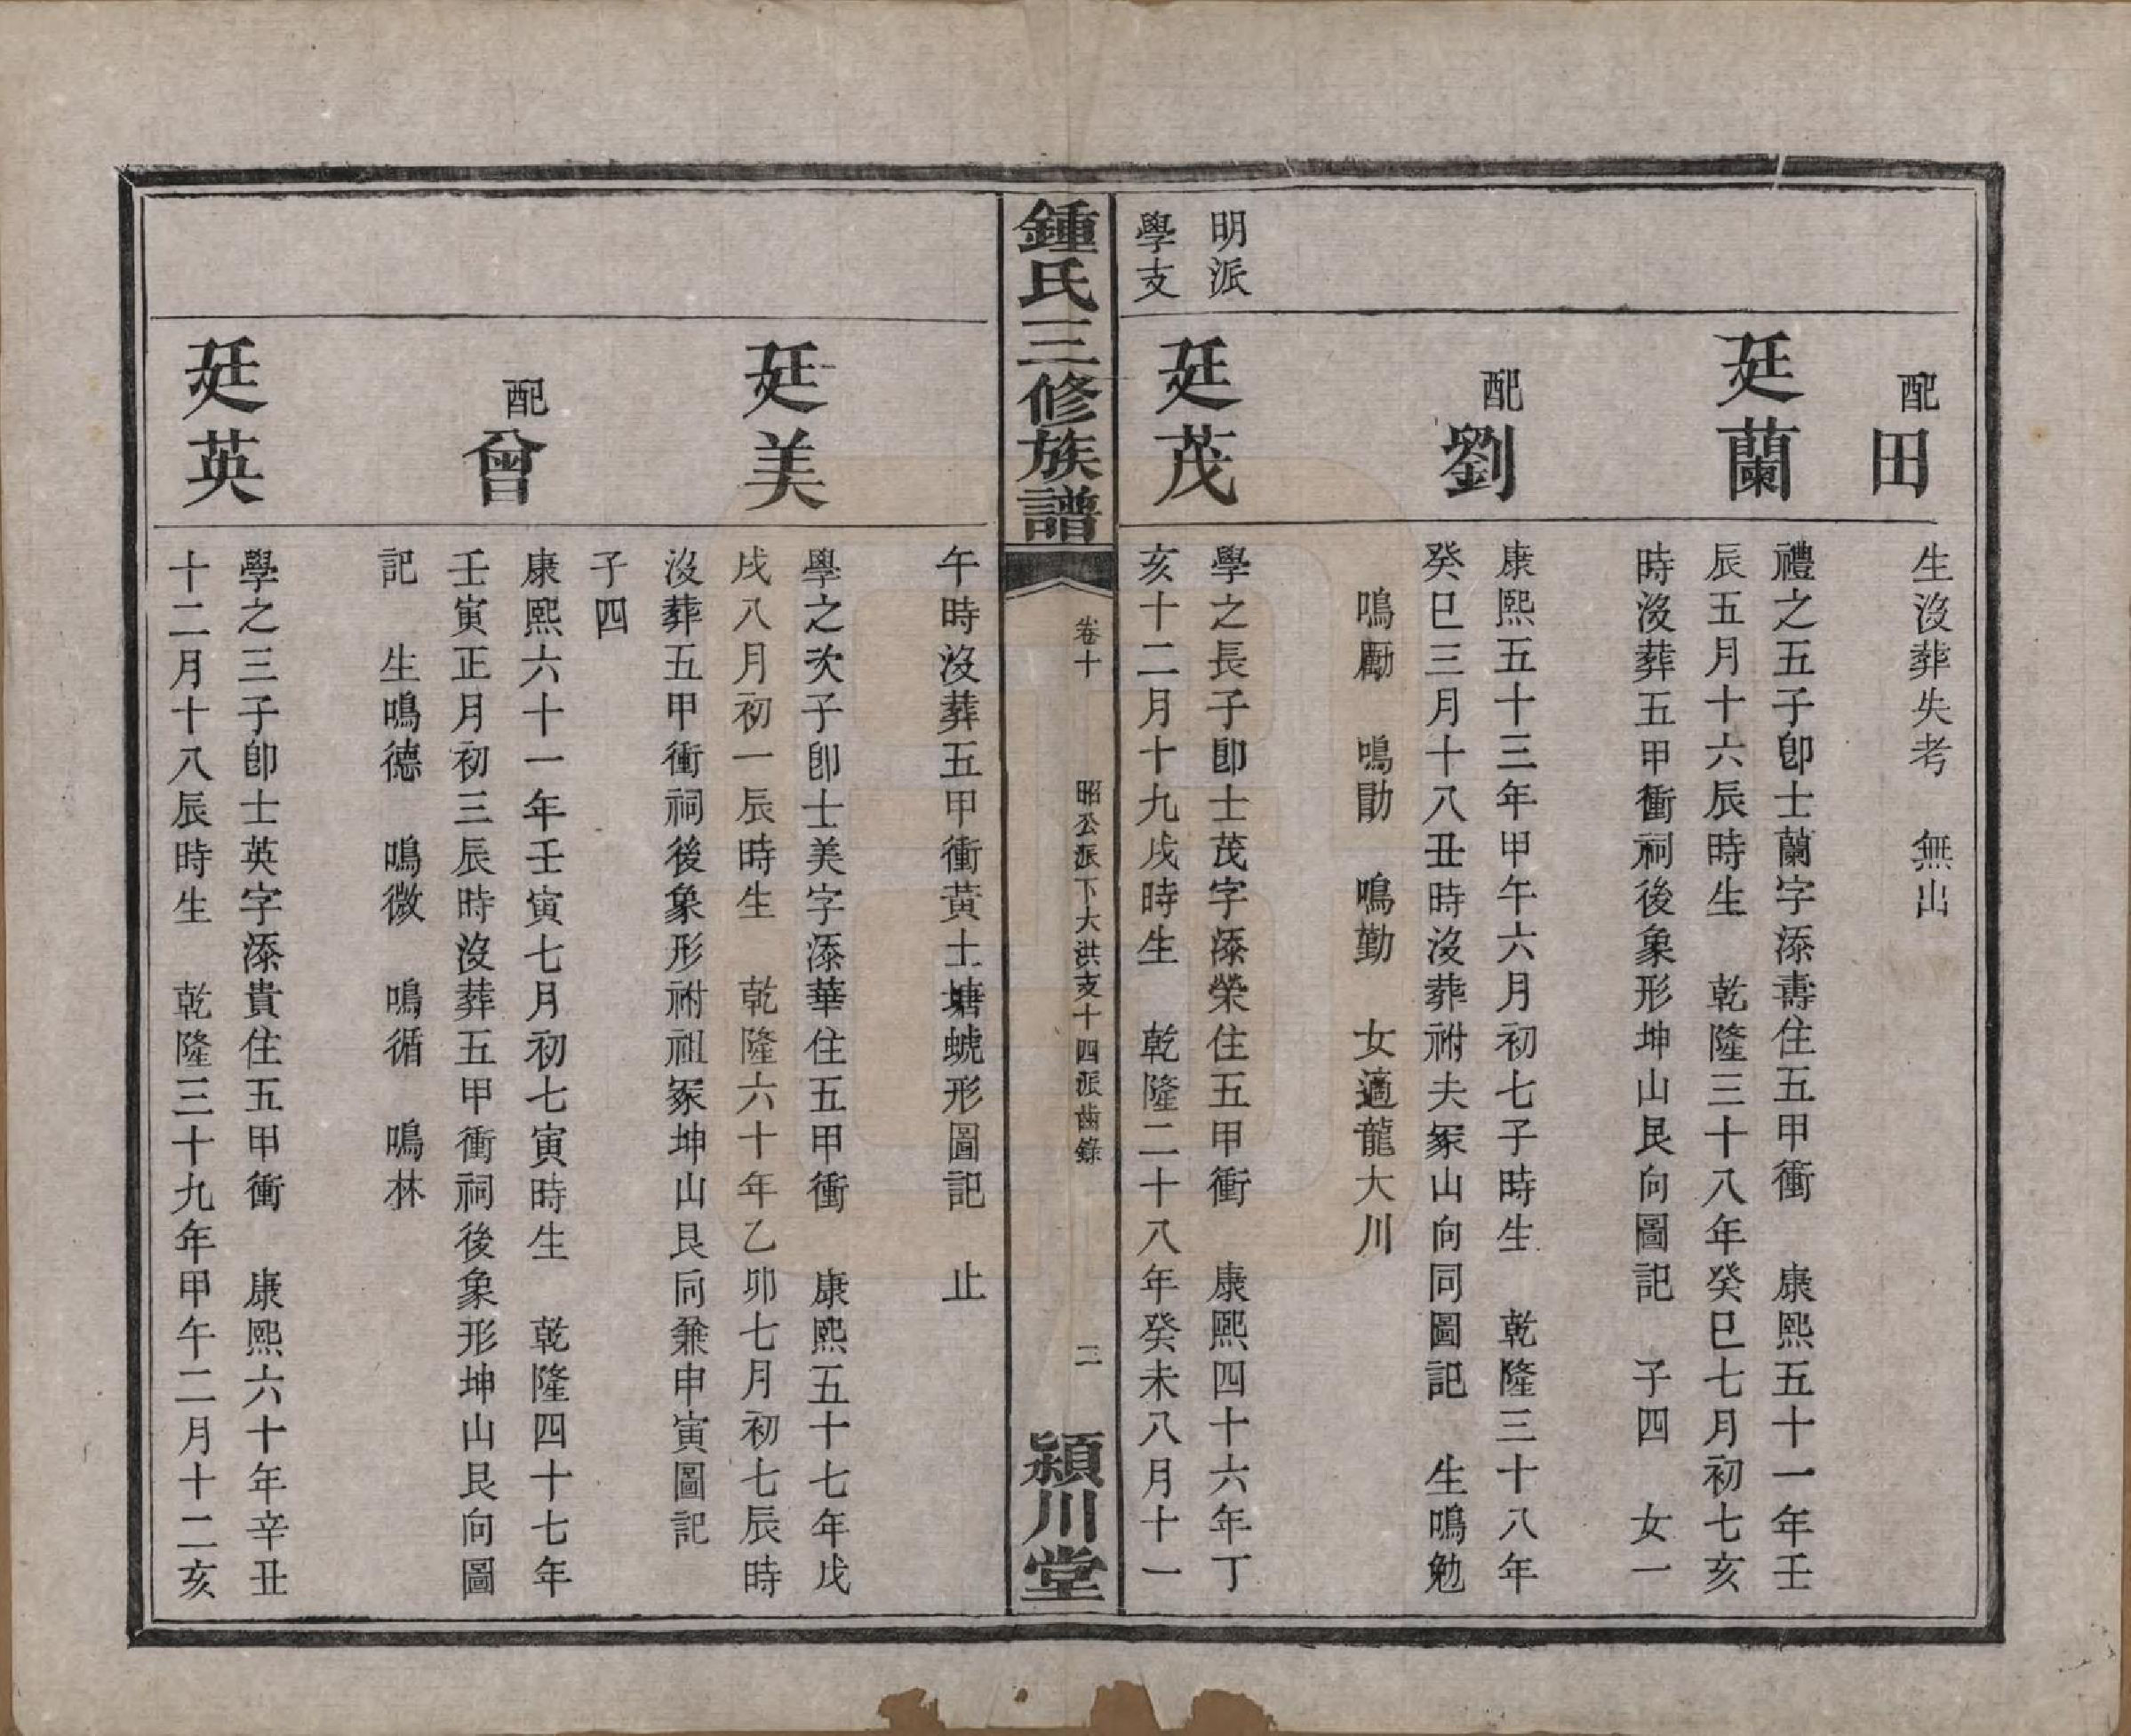 配田
生沒葬失考　無出
廷蘭
禮之五子卽士蘭字添壽住五甲衝　康熙五十一年壬
辰五月十六辰時生　乾隆三十八年癸巳七月初七亥
時沒葬五甲衝祠後象形坤山艮向圖記　子四　女一
配劉
康熙五十三年甲午六月初七子時生　乾隆三十八年
癸巳三月十八丑時沒葬祔夫冢山向同圖記　生鳴勉
鳴勵　鳴勛　鳴勤　女適龍大川
明派
學支
廷茂
學之長子卽士茂字添榮住五甲衝　康熙四十六年丁
亥十二月十九戌時生　乾隆二十八年癸未八月十一
鍾氏三修族譜
卷十　昭公派下大洪支十四派齒錄　二
潁川堂
午時沒葬五甲衝黃土塘蜣形圖記　止
廷美
學之次子卽士美字添華住五甲衝　康熙五十七年戊
戌八月初一辰時生　乾隆六十年乙卯七月初七辰時
沒葬五甲衝祠後象形祔祖冢坤山艮向兼申寅圖記
子四
配曾
康熙六十一年壬寅七月初七寅時生　乾隆四十七年
壬寅正月初三辰時沒葬五甲衝祠後象形坤山艮向圖
記　生鳴德　鳴徵　鳴循　鳴林
廷英
學之三子卽士英字添貴住五甲衝　康熙六十年辛丑
十二月十八辰時生　乾隆三十九年甲午二月十二亥